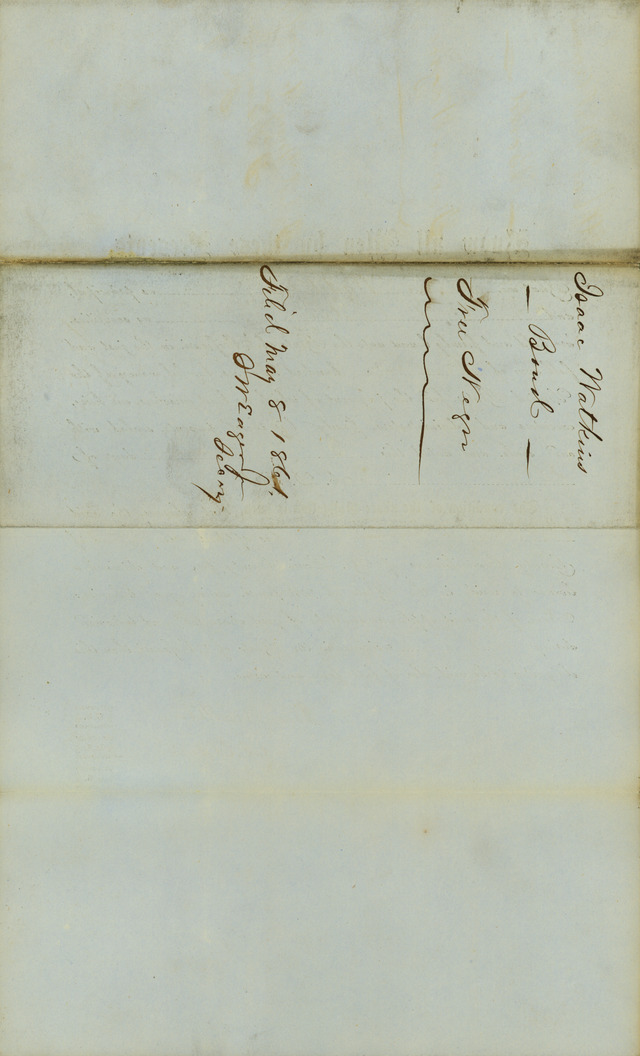 Isaac Watkins
— Bond —
Free Negro
Filed May 8 1861.